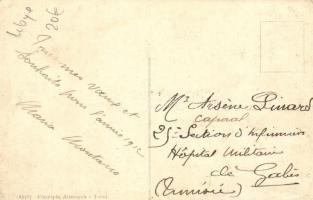 Libye
20€
Tous mes vœux et
souhaits pour l'année 1912
Maria
Mr Arsène Pinard
caporal
25e Section d'Infirmiers
Hôpital Militaire
de Gabès
(Tunisie)